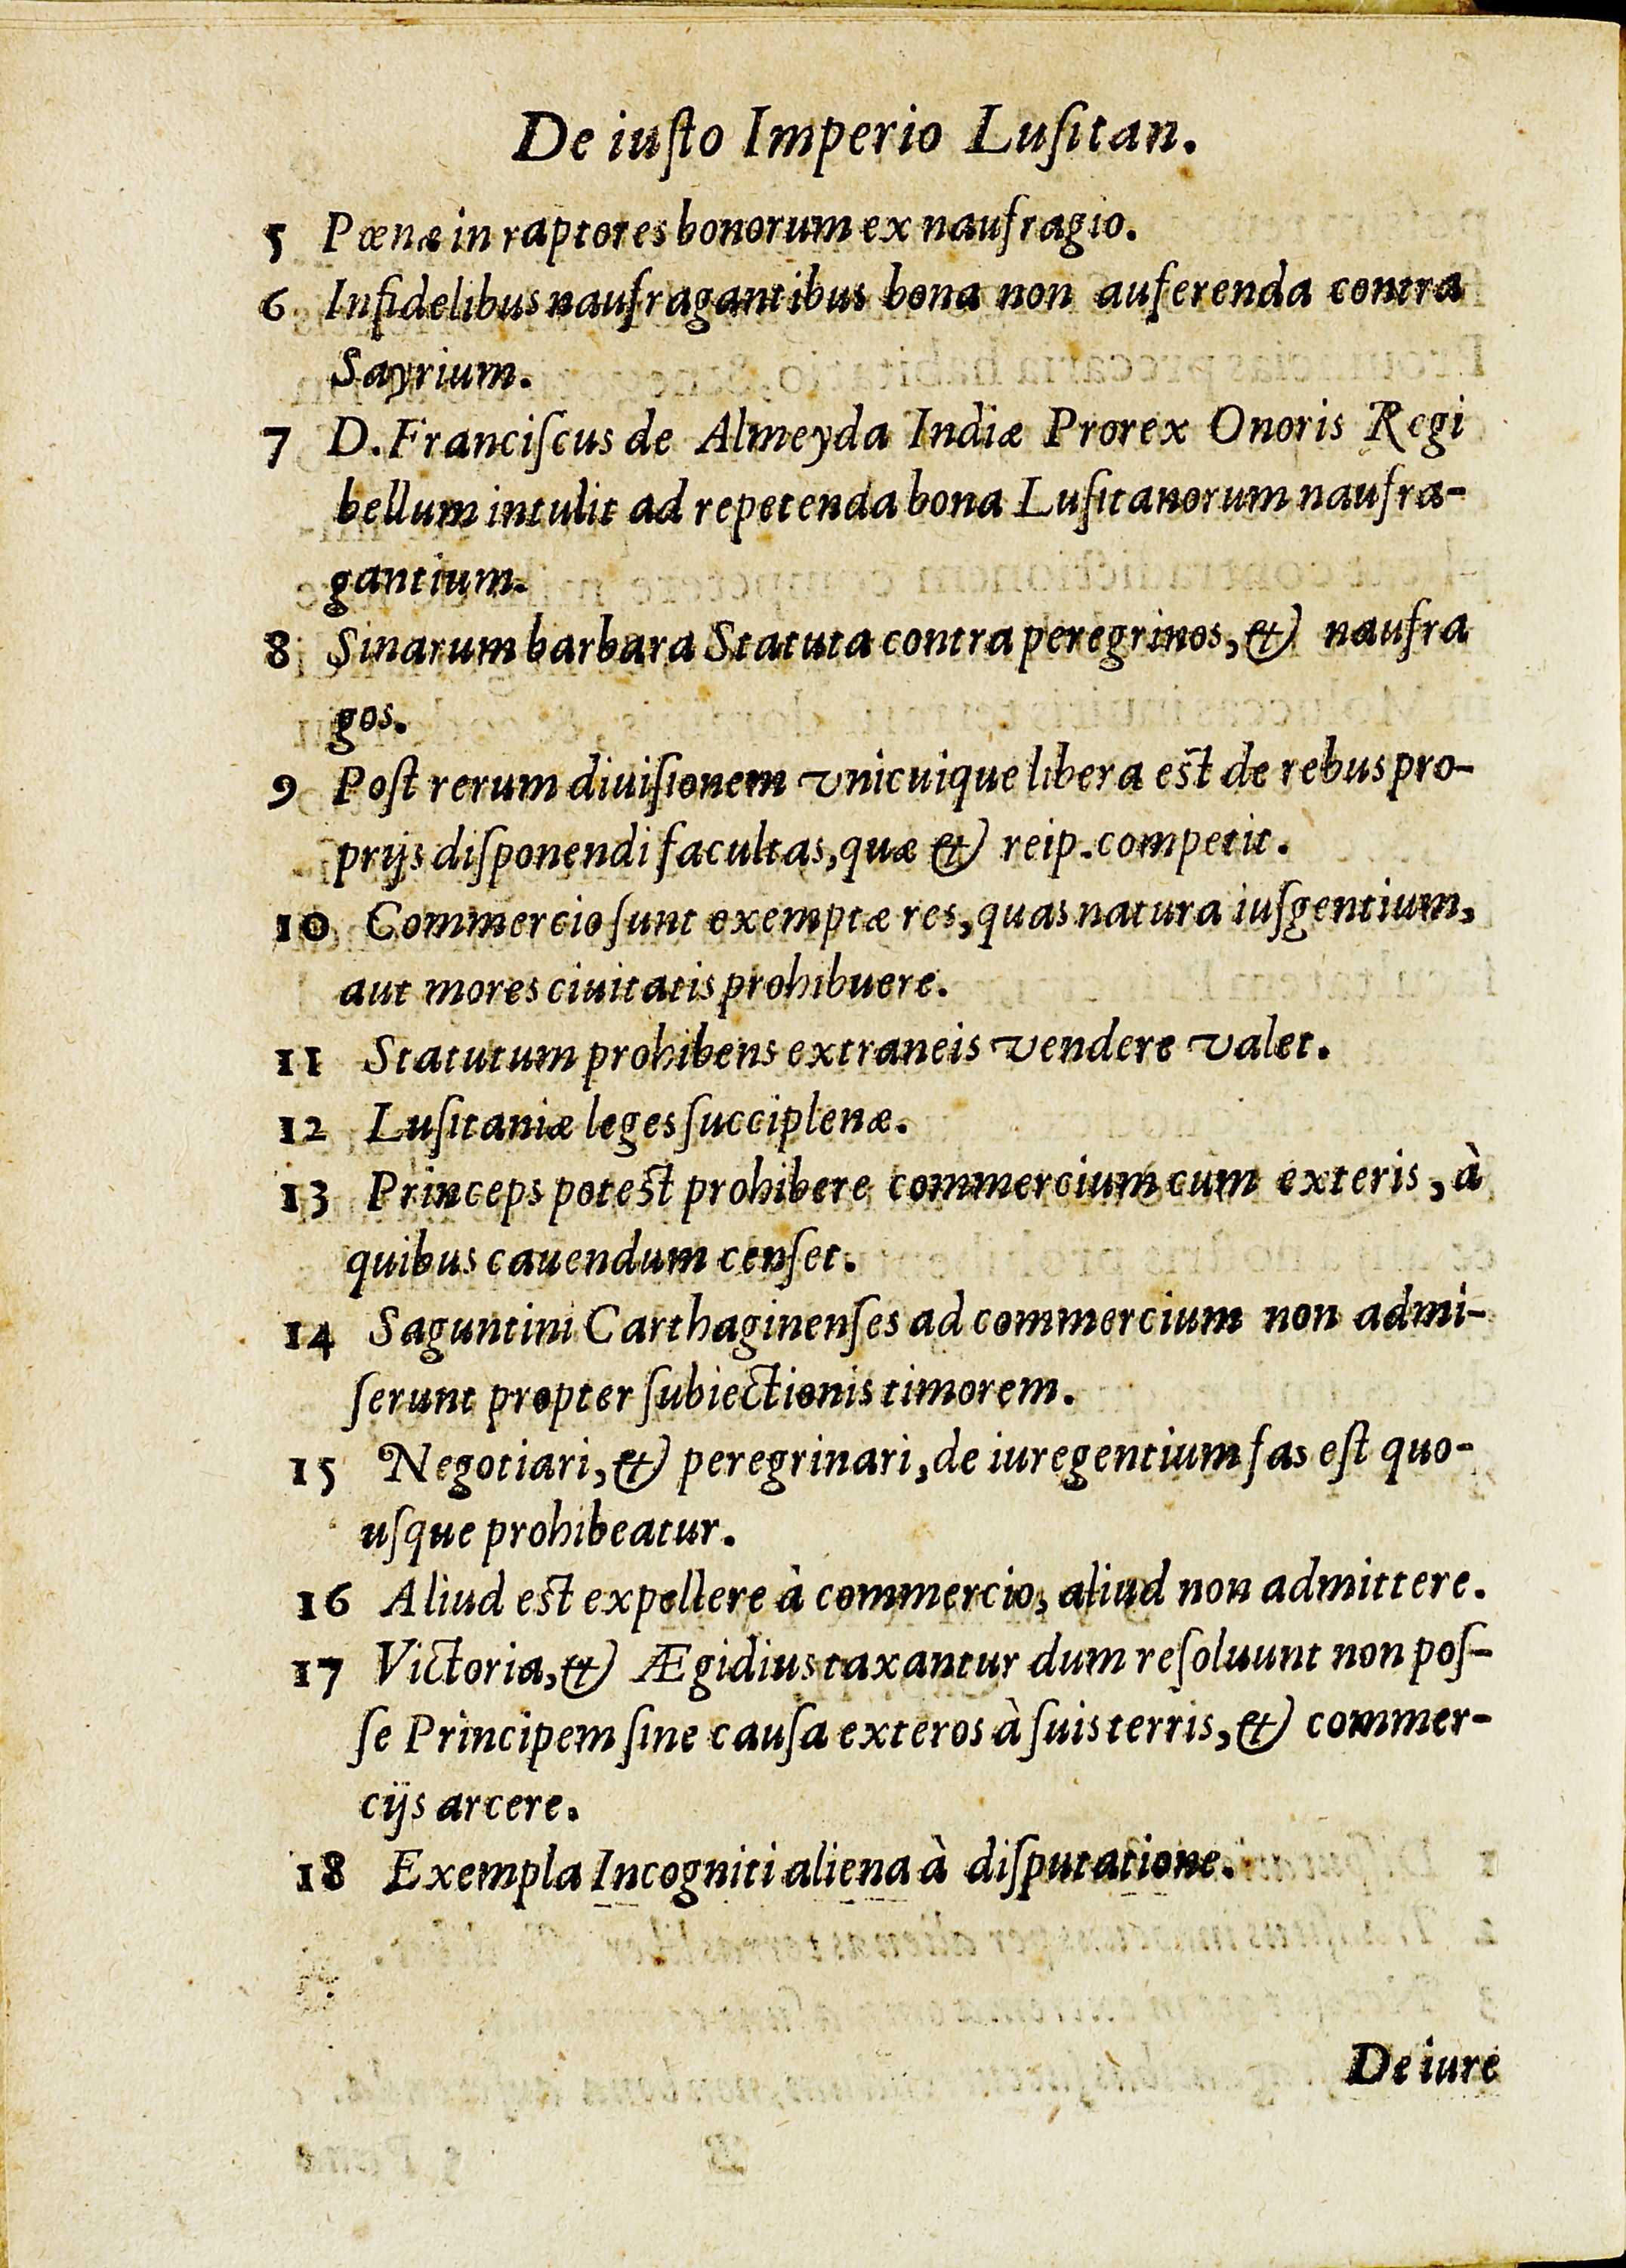 De iuſto Imperio Luſitan.
5 Pœnæ in raptores bonorum ex naufragio.
6 Infidelibus naufragantibus bona non auferenda contra
Sayrium.
7 D. Franciſcus de Almeyda Indiæ Prorex Onoris Regi
bellum intulit ad repetenda bona Luſitanorum naufra-
gantium.
8 Sinarum barbara Statuta contra peregrinos, & naufra
gos.
9 Poſt rerum diuiſionem vnicuique libera eſt de rebus pro-
prijs diſponendi facultas, quæ & reip. competit.
10 Commercio ſunt exemptæ res, quas natura iuſgentium,
aut mores ciuitatis prohibuere.
11 Statutum prohibens extraneis vendere valet.
12 Luſitaniæ leges ſucciplenæ.
13 Princeps poteſt prohibere commercium cum exteris, à
quibus cauendum cenſet.
14 Saguntini Carthaginenſes ad commercium non admi-
ſerunt propter ſubiectionis timorem.
15 Negotiari, & peregrinari, de iure gentium fas eſt quo-
uſque prohibeatur.
16 Aliud eſt expellere à commercio, aliud non admittere.
17 Victoria, & Ægidius taxantur dum reſoluunt non poſ-
ſe Principem ſine cauſa exteros à ſuis terris, & commer-
cijs arcere.
18 Exempla Incogniti aliena à diſputatione.
De iure